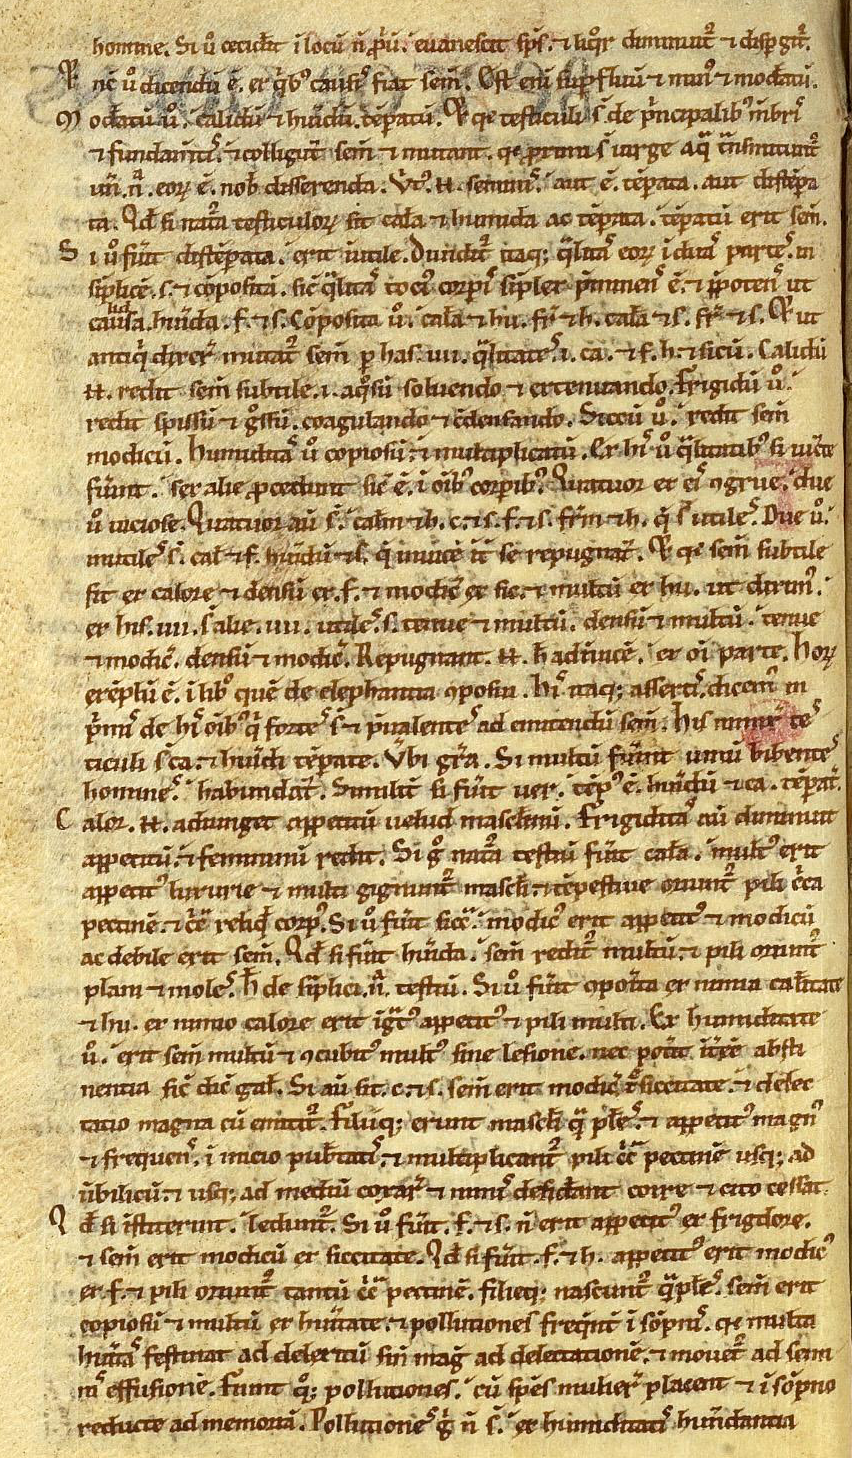 homine. Si ů ceciderit ĩ locũ ñ p̃riũ. euanescit sp̃s. ⁊ liq̃r diminuit᷑ ⁊ disp̱git᷑.
Nc̃ ů dicendũ ẽ. ex q̃b᷒ causis fiat sem̃. Est eni͂ suꝑfluũ ⁊ min᷒ ⁊ mod̃atũ.
Mod̃atũ ů. calidũ ⁊ humidũ. tẽꝑatũ. Et q̃ testiculi s̃. de p̃ncipalib᷒ m̃bris
⁊ fundam̃tis. ⁊ colligũt sem̃ ⁊ mutant. q̃ ꝓximi s̃ uirge a q̃ tñsmittunt᷑
un̄. n̄a. eoꝝ ẽ. nob̃ disserenda. aut ẽ. tẽꝑata. aut distẽꝑa
ta. Qd̃ si nat᷑a testiculoꝝ sit cal̃a ⁊ humida ac tẽꝑata. tẽꝑatũ erit sem̃.
Si ů fũit distẽꝑata. erit ĩutile. Diuidit᷑ itaq; q̃litas eoꝝ ĩ duas partes. in
simplicẽ. s. ⁊ cõpositã. sic̃ q̃litas toti᷒ corꝑis ut
calida. hũida. f. ⁊ s. Cõposita ů. cal̃a ⁊ hu. fr̃i ⁊ h. cal̃a ⁊ s. fr̃i ⁊ s. Et ut
antiq̃ dixer̃ mutat᷑ sem̃ ꝑ has. iiii. q̃litates. i. ca. ⁊ f. h. ⁊ siccũ. Calidũ
.n. reddit sem̃ subtile. i. aq̃sũ soluendo ⁊ extenuando. Frigidũ ů.
reddit spissũ ⁊ g̃ssũ. coagulando ⁊ c̃densando. Siccũ ů. reddit sem̃
modicũ. Humiditas ů copiosũ. ⁊ multiplicatũ. Ex his ů q̃litatib᷒ si iũcte
fũint. sex alie ꝓcedunt sic̃ ẽ. ĩ oĩb᷒ corꝑib᷒. Quatuor ex eis ꝯgrue. due
ů uiciose. Quatuor aũ s̃. calm̃ ⁊ h. c. ⁊ s. f. ⁊ s. fr̃m ⁊ h. q̃ s̃ utiles. Due ů.
inutiles s̃. cal ⁊ f. humidũ ⁊ s. q̃ inuicẽ ĩt̃ se repugnãt. Et q̃ sem̃ subtile
fit ex calore ⁊ densũ ex. f. ⁊ modic̃ ex sic. ⁊ multũ ex hu. ut dixim᷒.
ex his. iiii. s̃ alie. iiii. utiles. s. tenue ⁊ multũ. densũ ⁊ multũ. tenue
⁊ modic̃. densũ ⁊ modic̃. Repugnant .n. h̃ adĩuicẽ. ex oĩ parte. Hoꝝ
exẽplũ ẽ. ĩ lib᷒ quẽ de elephantia ꝯposui. His itaq; assertis. dicem᷒ in
p̃mis de his oĩb᷒ q̃ fortes s̃ ⁊ p̃ualentes ad emittendũ sem̃. His nimis tes
ticuli s̃ ca. ⁊ humidi tẽꝑate. Vbi gr̃a. Si multũ fũint uinũ bibentes
homines. habundãt. Similit̃ si fũit uer. tẽp᷒ ẽ. humidũ ⁊ ca. tẽꝑat̃.
Calor .n. adiunget appetitũ uelud masclinũ. Frigiditas aũ diminuit
appetitũ. ⁊ femininũ reddit. Si g̃ nat᷑a testiũ fũit cal̃a. mult᷒ erit
appetit᷒ luxurie ⁊ multi gignunt᷑ mascl̃i. ⁊ tẽpestiue oriunt᷑ pili c̃ca
pectinẽ. ⁊ c̃c̃ reliq̃ corp᷒. Si ů fũit sicc̃. modic᷒ erit appetit᷒ ⁊ modicũ
ac debile erit sem̃. Qd̃ si fũit humida. sem̃ reddit᷑ multũ. ⁊ pili oriunt᷑
plani ⁊ moles. H̃ de simplici. n̄a. testiũ. Si ů fũit ꝯposita ex nimia calitate
⁊ hu. ex nimio calore erit ĩgẽs appetit᷒ ⁊ pili multi. Ex humiditate
ů. erit sem̃ multũ ⁊ ꝯcubit᷒ mult᷒ sine lesione. nec potit absti
nentia sic̃ dic̃ gal. Si aũ sit. c. ⁊ s. sem̃ erit modic̃ siccitate. ⁊ delec
tatio magna cũ emittit᷑. Filiiq; erunt mascl̃i q̃ pl̃es. ⁊ appetit᷒ magn᷒
⁊ frequens. ĩ inicio pub̃tatis. ⁊ multiplicant᷑ pili c̃c̃ pectinẽ usq; ad
ũbilicũ. ⁊ usq; ad mediũ coxaꝝ ⁊ nimis desid̃ant coire ⁊ cito cessat.
Qd̃ si ĩstiterint. ledunt᷑. Si ů fũit. f. ⁊ s. ñ erit appetit᷒ ex frigdore.
⁊ sem̃ erit modicũ ex siccitate. Qd̃ si fũit. f. ⁊ h. appetit᷒ erit modic᷒
ex. f. ⁊ pili oriunt᷑ tantũ c̃c̃ pectinẽ. filieq; nascunt᷑ q̃ pl̃es. sem̃ erit
copiosũ ⁊ multũ ex hũitate. ⁊ pollutiones freq̃nt̃ ĩ sõpnis. q̃ multa
humitas festinat ad delectũ sñ mag̃ ad delectationẽ. ⁊ mouet᷑ ad semi
nis effusionẽ. Fiunt q̃q; pollutiones. cũ sp̃es mulieris placent ⁊ ĩ sõpno
reducte ad memoriã. Pollutiones g̃ ñ s̃. ex humiditatis habũdantia